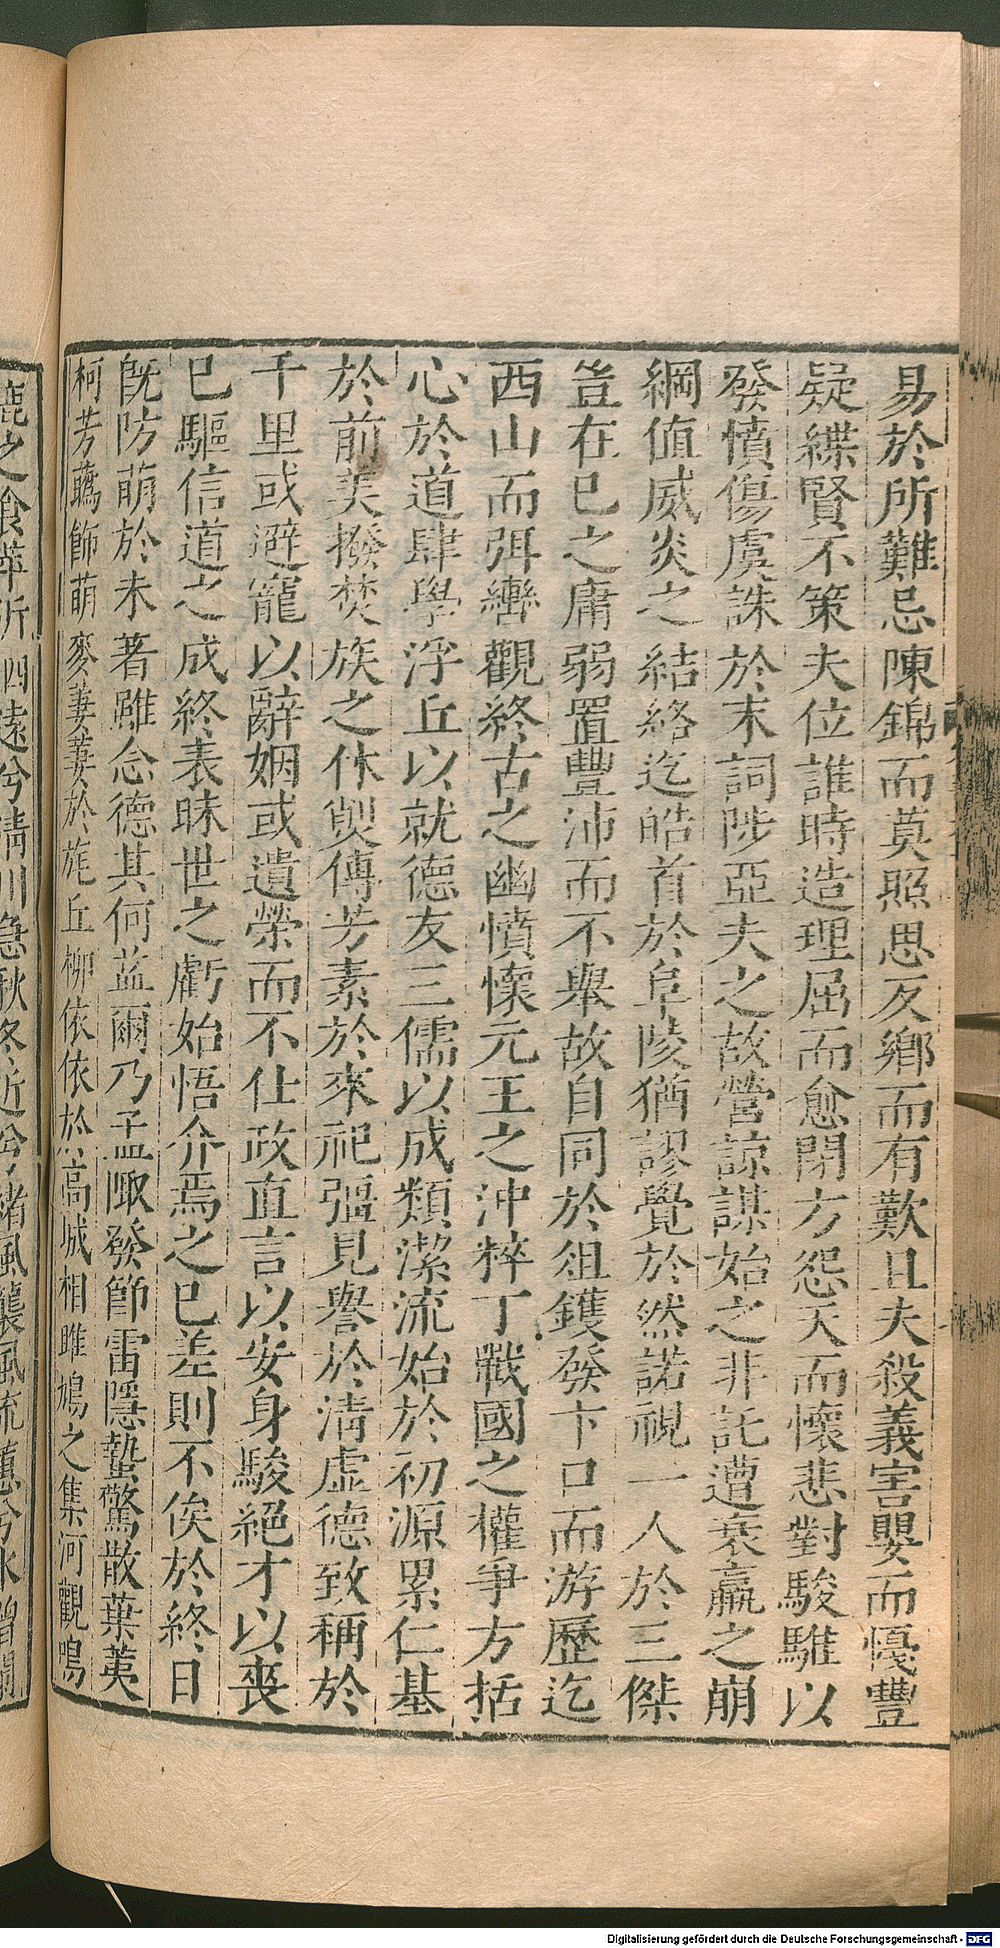 易於所難忌陳錦而莫照思反鄉而有歎且夫殺義害嬰而憂豐
疑緤賢不策夫位誰時造理屈而愈閉方怨天而懷悲對駿騅以
發憤傷虞誅於末詞陟亞夫之故營諒謀始之非託遭衰嬴之崩
綱值威炎之結絡迄皓首於阜陵猶謬覺於然諾視一人於三傑
豈在已之庸弱置豐沛而不舉故自同於俎鑊發卞口而游歷迄
西山而弭轡觀終古之幽憤懷元王之沖粹丁戰國之權爭方括
心於道肆學浮丘以就德友三儒以成類潔流始於初源累仁基
於前美撥焚族之休㷟傳芳素於來祀彊見譽於淸虛德致稱於
千里或避寵以辭姻或遺榮而不仕政直言以安身駿絕才以喪
已驅信道之成終表昧世之虧始悟介焉之已差則不俟於終日
旣防萌於未著雖念德其何益爾乃孟陬發節雷隱蟄驚散葉荑
柯芳蘤飾萌麥萋萋於旄丘柳依依於高城相雎鳩之集河觀鳴
鹿之食苹泝四遠兮淸川急秋冬近兮緒風襲風流蕙兮水增瀾
Digitalisierung gefördert durch die Deutsche Forschungsgemeinschaft - DFG